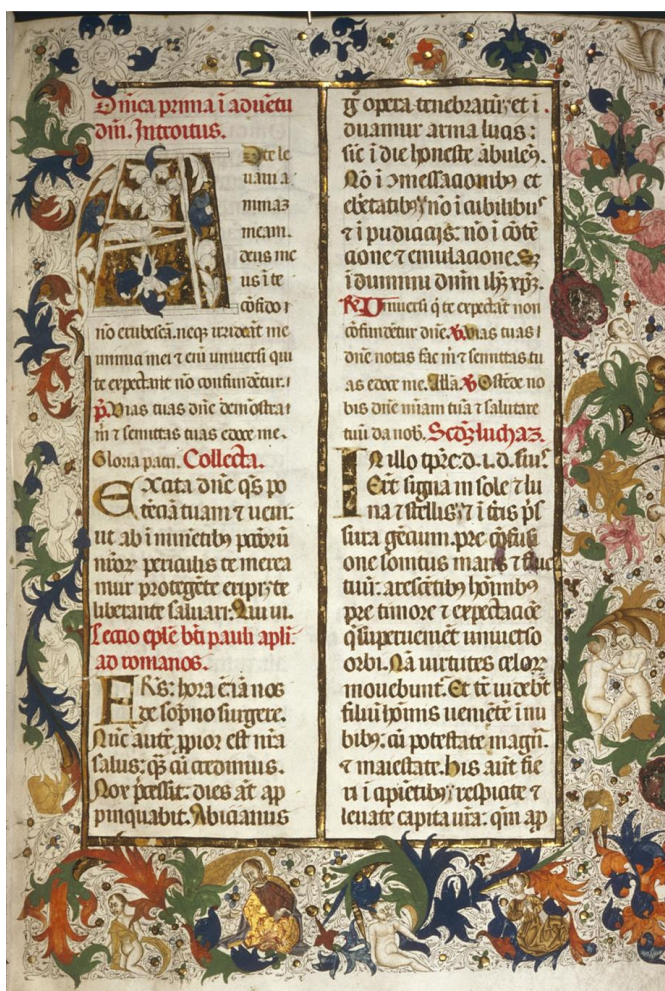 Dn̄ica prima ī aduētu
dn̄i. Introitus.
Ad te le
uaui a
nimaʒ
meam.
deus me
us ī te
cōfido
nō erubescā. neqꝫ irrideāt me
inimici mei ⁊ em̄ uniuersi qui
te expectant nō confundētur.
p̄. Vias tuas dn̄e demōstra
m̄ ⁊ semittas tuas edoce me.
Gloria patri. Collecta.
Excita dn̄e q̄s po
tēciā tuam ⁊ ueni:
ut ab īminētibꝫ pc̄ōrū
nr̄or̄ periculis te merea
mur protegēte eripi: te
liberante saluari: Qui ui.
Lectio eplē bt̄i pauli apli:
ad romanos.
FRS: hora ē iā nos
de sop̄no surgere.
Nūc autē ꝓpior est nr̄a
salus: qꝫ cū credimus.
Nox p̄cessit: dies āt ap
pinquabit. Abiciamus
g̊ opera tenebrarū: et ī
duamur arma lucis:
sic ī die honeste ābulem̄.
Nō ī ꝯmessacionibꝫ et
ebrietatibꝫ: nō ī cubilibus
⁊ īpudicicijs: nō ī cōtē
cione ⁊ emulacione. Sꝫ
īduimini dn̄m ih̄m xp̄m.
R̄. Uniuersi q̄ te expectāt non
cōfundētur dn̄e. ℣. Vias tuas
dn̄e notas fac m̄ ⁊ semittas tu
as edoce me. Alla. ℣. Ostēde no
bis dn̄e mīam tuā ⁊ salutare
tuū da nob̄. Scd̄ꝫ lucham.
In illo tp̄re: d. i. d. suis:
Erūt signa in sole ⁊ lu
na ⁊ stellis: ⁊ ī tr̄is p̄s
sura gēcium: pre cōfusi
one sonitus maris ⁊ fluc
tuū: arescētibꝫ hōmībꝫ
pre timore ⁊ expectacōe
q̄ superueniēt uniuerso
orbi. Nā uirtutes celorꝫ
mouebunt̄. Et tē uidebt̄
filiū hōmis ueniētē ī nu
bibꝫ: cū potestate magn̄.
⁊ maiestate. His aūt fie
ri īcipiētibꝫ: respicite ⁊
leuate capita ur̄a: qm̄ ap